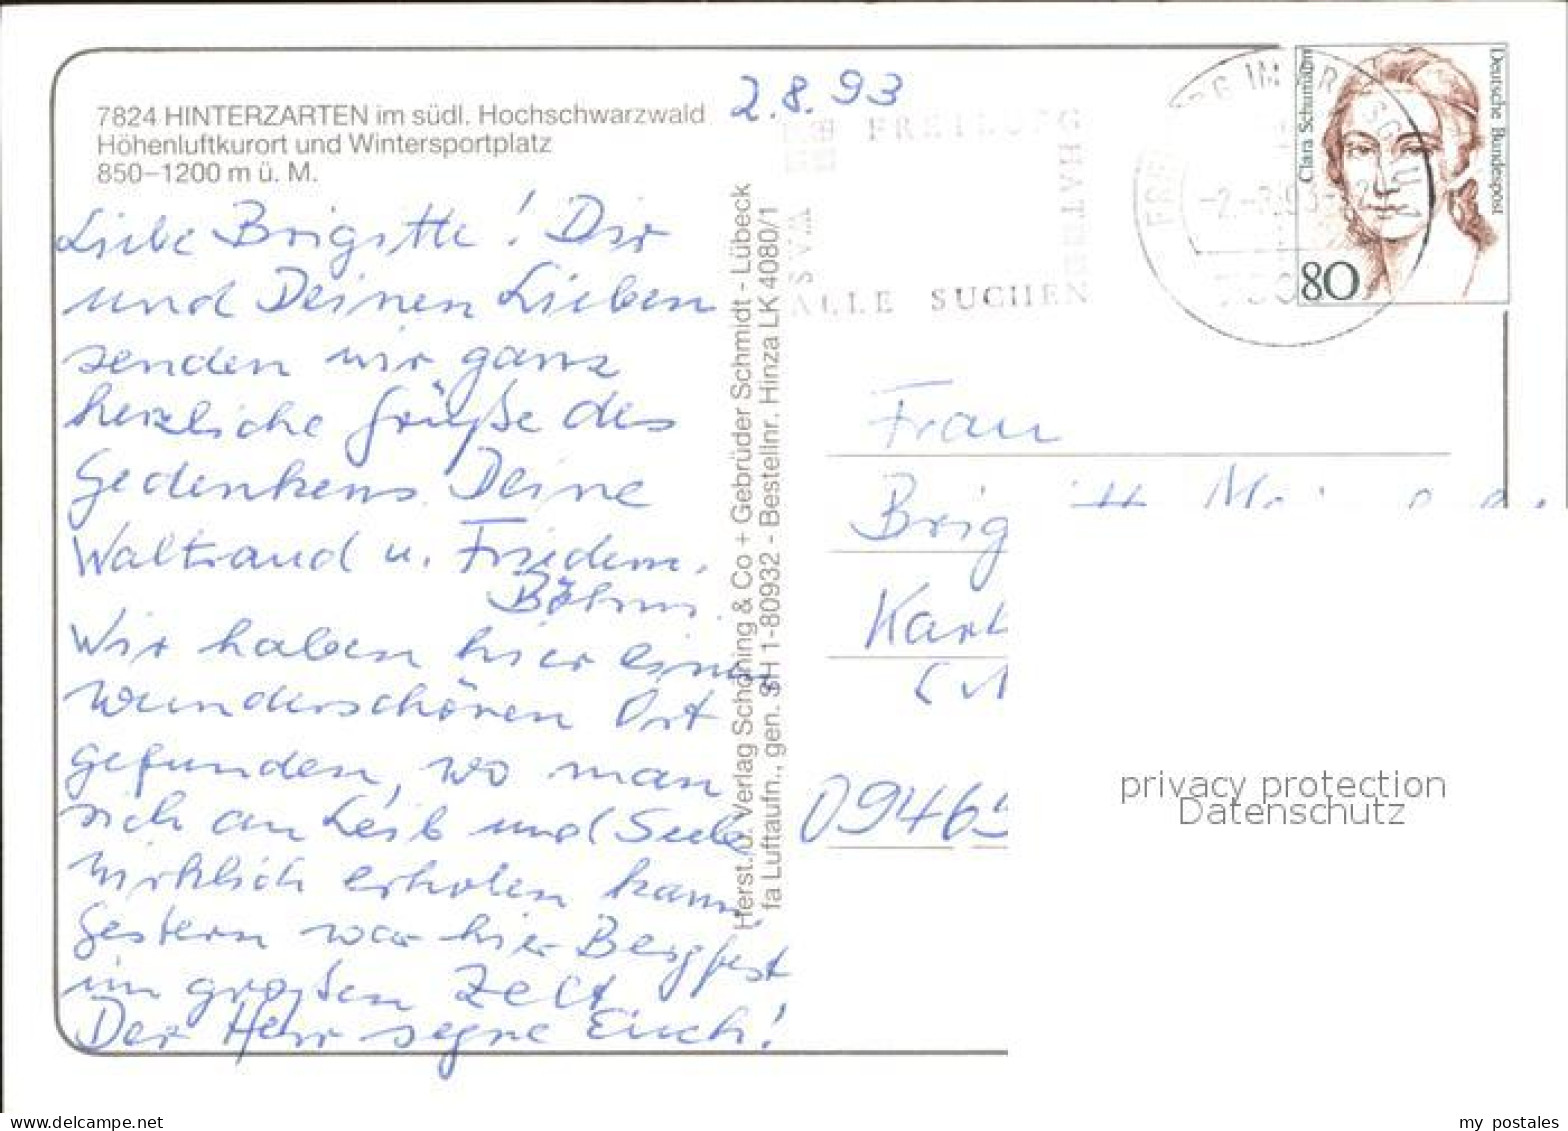 2.8.93
7824 HINTERZARTEN im südl. Hochschwarzwald
Höhenluftkurort und Wintersportplatz
850–1200 m ü. M.
Liebe Brigitte! Dir
und Deinen Lieben
senden wir ganz
herzliche Grüße des
Gedenkens. Deine
Waltraud u. Friedem.
Böhm.
Wir haben hier einen
wunderschönen Ort
gefunden, wo man
sich an Leib und Seele
wirklich erholen kann.
Gestern war hier Bergfest
im großen Zelt
Der Herr segne Euch!
Herst. u. Verlag Schöning & Co + Gebrüder Schmidt - Lübeck
fa Luftaufn., gen. SH 1-80932 - Bestellnr. Hinza LK 4080/1
FREIBURG
WAS
ALLE SUCHEN
Clara Schumann
Deutsche Bundespost
80
Frau
Brigitte
09465
privacy protection
Datenschutz
my postales